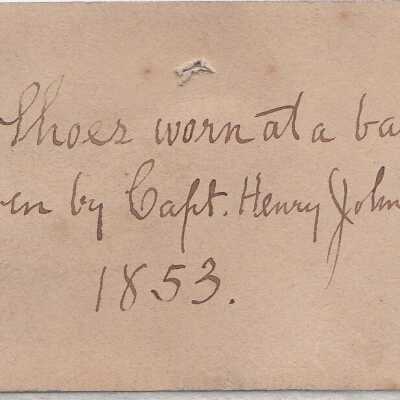 Shoes worn at a ba
en by Capt. Henry John
1853.